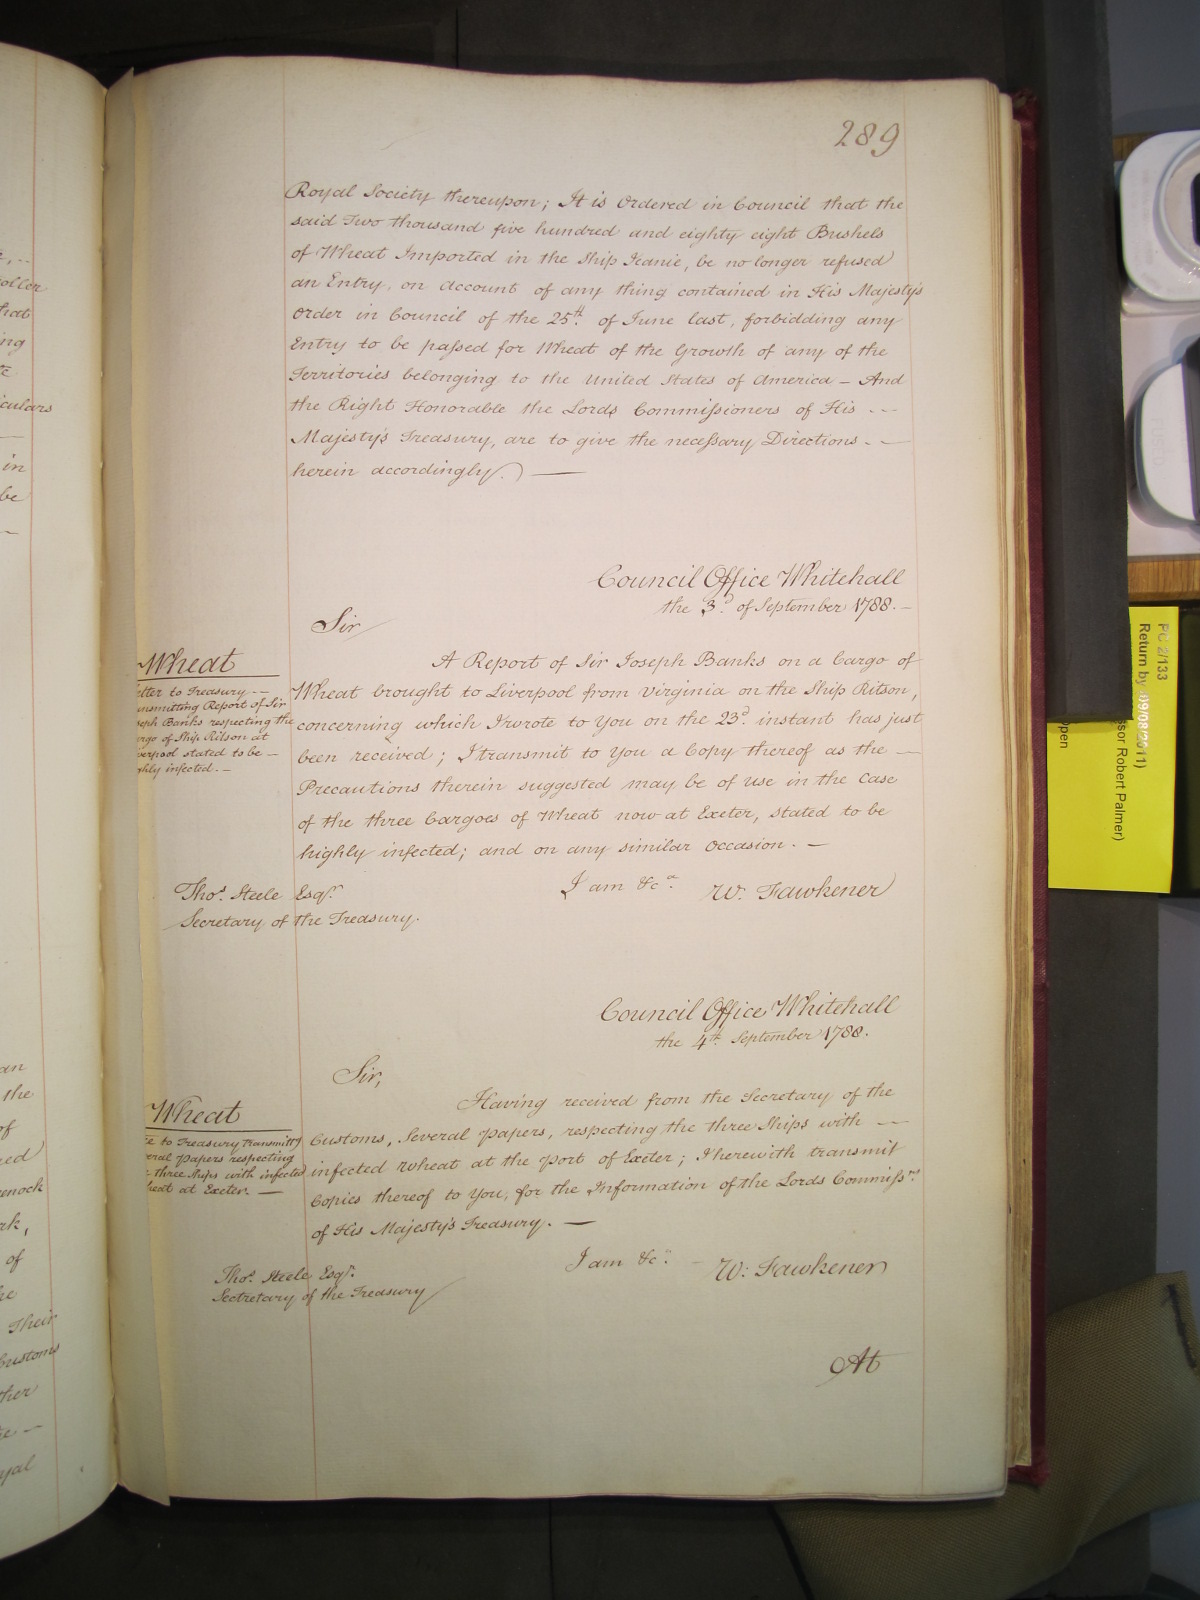 289
Royal Society thereupon; It is Ordered in Council that the
said Two thousand five hundred and eighty eight Bushels
of Wheat Imported in the Ship Jeanie, be no longer refused
an Entry, on account of any thing contained in His Majesty's
Order in Council of the 25th. of June last, forbidding any
Entry to be passed for Wheat of the Growth of any of the
Territories belonging to the United States of America – And
the Right Honorable the Lords Commissioners of His --
Majesty's Treasury, are to give the necessary Directions --
herein accordingly. —
Council Office Whitehall
the 3d. of September 1788. –
Sir
Wheat
etter to Treasury --
ansmitting Report of Sir
seph Banks respecting the
argo of Ship Ritson at
verpool stated to be –
ghly infected. –
A Report of Sir Joseph Banks on a Cargo of
Wheat brought to Liverpool from Virginia on the Ship Ritson,
concerning which I wrote to You on the 23d. instant has just
been received; I transmit to You a Copy thereof as the —
Precautions therein suggested may be of use in the Case
of the three Cargoes of Wheat now at Exeter, stated to be
highly infected; and on any similar Occasion. –
I am &ca.
W. Fawkener
Thos. Steele Esqr.
Secretary of the Treasury.
Council Office Whitehall
the 4th. September 1788.
Sir,
Wheat
e to Treasury transmittg
eral papers respecting
three Ships with infected
heat at Exeter. —
Having received from the Secretary of the
Customs, Several papers, respecting the three Ships with —
infected Wheat at the port of Exeter; I herewith transmit
Copies thereof to You, for the Information of the Lords Commissrs.
of His Majesty's Treasury. —
I am &c.
W: Fawkener
Thos. Steele Esqr.
Secretary of the Treasury
At
PC 2/133
Return by (09/08/2011)
ssor Robert Palmer)
pen
oller
hat
ng
te
iculars
in
be
an
the
of
ued
eenock
rk,
of
he
Their
Customs
ther
yal